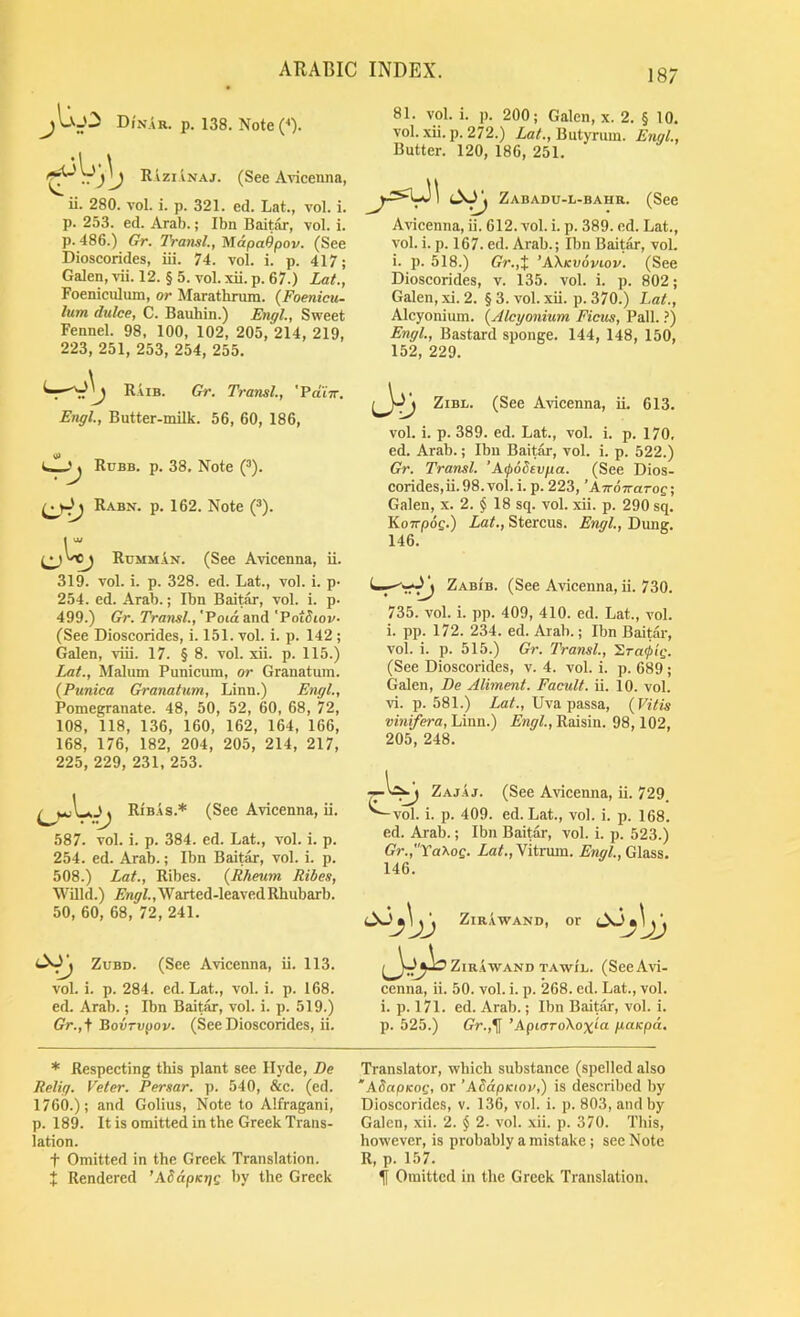 ARABIC INDEX.
187
دينار Dínár. p. 138. Note (⁴).
رازيانج Ráziánaj. (See Avicenna,
ii. 280. vol. i. p. 321. ed. Lat., vol. i.
p. 253. ed. Arab.; Ibn Baitár, vol. i.
p. 486.) Gr. Transl., Μάραθρον. (See
Dioscorides, iii. 74. vol. i. p. 417;
Galen, vii. 12. § 5. vol. xii. p. 67.) Lat.,
Foeniculum, or Marathrum. (Foenicu-
lum dulce, C. Bauhin.) Engl., Sweet
Fennel. 98, 100, 102, 205, 214, 219,
223, 251, 253, 254, 255.
رايب Ráib. Gr. Transl., Ῥάϊπ.
Engl., Butter-milk. 56, 60, 186,
ربّ Rubb. p. 38. Note (³).
ربن Rabn. p. 162. Note (³).
رمّان Rummán. (See Avicenna, ii.
319. vol. i. p. 328. ed. Lat., vol. i. p.
254. ed. Arab.; Ibn Baitár, vol. i. p.
499.) Gr. Transl., Ῥοιά and Ῥοΐδιον.
(See Dioscorides, i. 151. vol. i. p. 142;
Galen, viii. 17. § 8. vol. xii. p. 115.)
Lat., Malum Punicum, or Granatum.
(Punica Granatum, Linn.) Engl.,
Pomegranate. 48, 50, 52, 60, 68, 72,
108, 118, 136, 160, 162, 164, 166,
168, 176, 182, 204, 205, 214, 217,
225, 229, 231, 253.
ريباس Ríbás.* (See Avicenna, ii.
587. vol. i. p. 384. ed. Lat., vol. i. p.
254. ed. Arab.; Ibn Baitár, vol. i. p.
508.) Lat., Ribes. (Rheum Ribes,
Willd.) Engl., Warted-leaved Rhubarb.
50, 60, 68, 72, 241.
زبد Zubd. (See Avicenna, ii. 113.
vol. i. p. 284. ed. Lat., vol. i. p. 168.
ed. Arab.; Ibn Baitár, vol. i. p. 519.)
Gr.,† Βούτυρον. (See Dioscorides, ii.
81. vol. i. p. 200; Galen, x. 2. § 10.
vol. xii. p. 272.) Lat., Butyrum. Engl.,
Butter. 120, 186, 251.
زبد البحر Zabadu-l-bahr. (See
Avicenna, ii. 612. vol. i. p. 389. ed. Lat.,
vol. i. p. 167. ed. Arab.; Ibn Baitár, vol.
i. p. 518.) Gr.,‡ Ἀλκυόνιον. (See
Dioscorides, v. 135. vol. i. p. 802;
Galen, xi. 2. § 3. vol. xii. p. 370.) Lat.,
Alcyonium. (Alcyonium Ficus, Pall. ?)
Engl., Bastard sponge. 144, 148, 150,
152, 229.
زبل Zibl. (See Avicenna, ii. 613.
vol. i. p. 389. ed. Lat., vol. i. p. 170.
ed. Arab.; Ibn Baitár, vol. i. p. 522.)
Gr. Transl. Ἀφόδευμα. (See Dios-
corides, ii. 98. vol. i. p. 223, Ἀπόπατος;
Galen, x. 2. § 18 sq. vol. xii. p. 290 sq.
Κοπρός.) Lat., Stercus. Engl., Dung.
146.
زبيب Zabíb. (See Avicenna, ii. 730.
735. vol. i. pp. 409, 410. ed. Lat., vol.
i. pp. 172. 234. ed. Arab.; Ibn Baitár,
vol. i. p. 515.) Gr. Transl., Σταφίς.
(See Dioscorides, v. 4. vol. i. p. 689;
Galen, De Aliment. Facult. ii. 10. vol.
vi. p. 581.) Lat., Uva passa, (Vitis
vinifera, Linn.) Engl., Raisin. 98, 102,
205, 248.
زجاج Zajáj. (See Avicenna, ii. 729.
vol. i. p. 409. ed. Lat., vol. i. p. 168.
ed. Arab.; Ibn Baitár, vol. i. p. 523.)
Gr., Ὕαλος. Lat., Vitrum. Engl., Glass.
146.
زراوند Ziráwand, or زراوند
طويل Ziráwand tawíl. (See Avi-
cenna, ii. 50. vol. i. p. 268. ed. Lat., vol.
i. p. 171. ed. Arab.; Ibn Baitár, vol. i.
p. 525.) Gr.,¶ Ἀριστολοχία μακρά.
* Respecting this plant see Hyde, De
Relig. Veter. Persar. p. 540, &c. (ed.
1760.); and Golius, Note to Alfragani,
p. 189. It is omitted in the Greek Trans-
lation.
† Omitted in the Greek Translation.
‡ Rendered Ἀδάρκης by the Greek
Translator, which substance (spelled also
Ἄδαρκος, or Ἀδάρκιον,) is described by
Dioscorides, v. 136, vol. i. p. 803, and by
Galen, xii. 2. § 2. vol. xii. p. 370. This,
however, is probably a mistake; see Note
R, p. 157.
¶ Omitted in the Greek Translation.